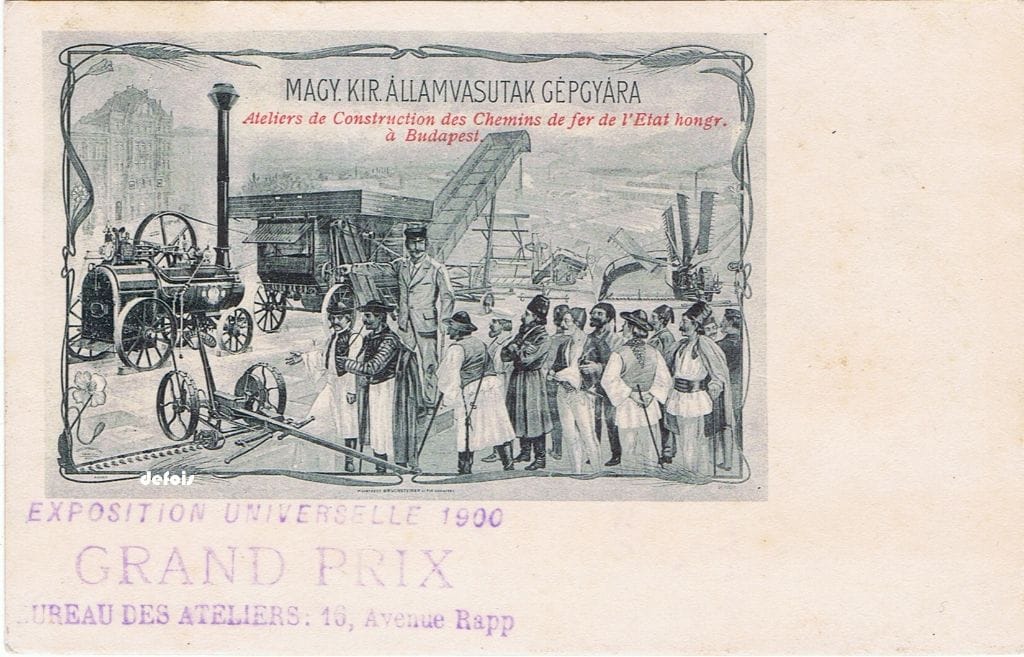 MAGY. KIR. ÁLLAMVASUTAK GÉPGYÁRA
Ateliers de Construction des Chemins de fer de l'Etat hongr.
à Budapest.
defois
EXPOSITION UNIVERSELLE 1900
GRAND PRIX
BUREAU DES ATELIERS: 16, Avenue Rapp